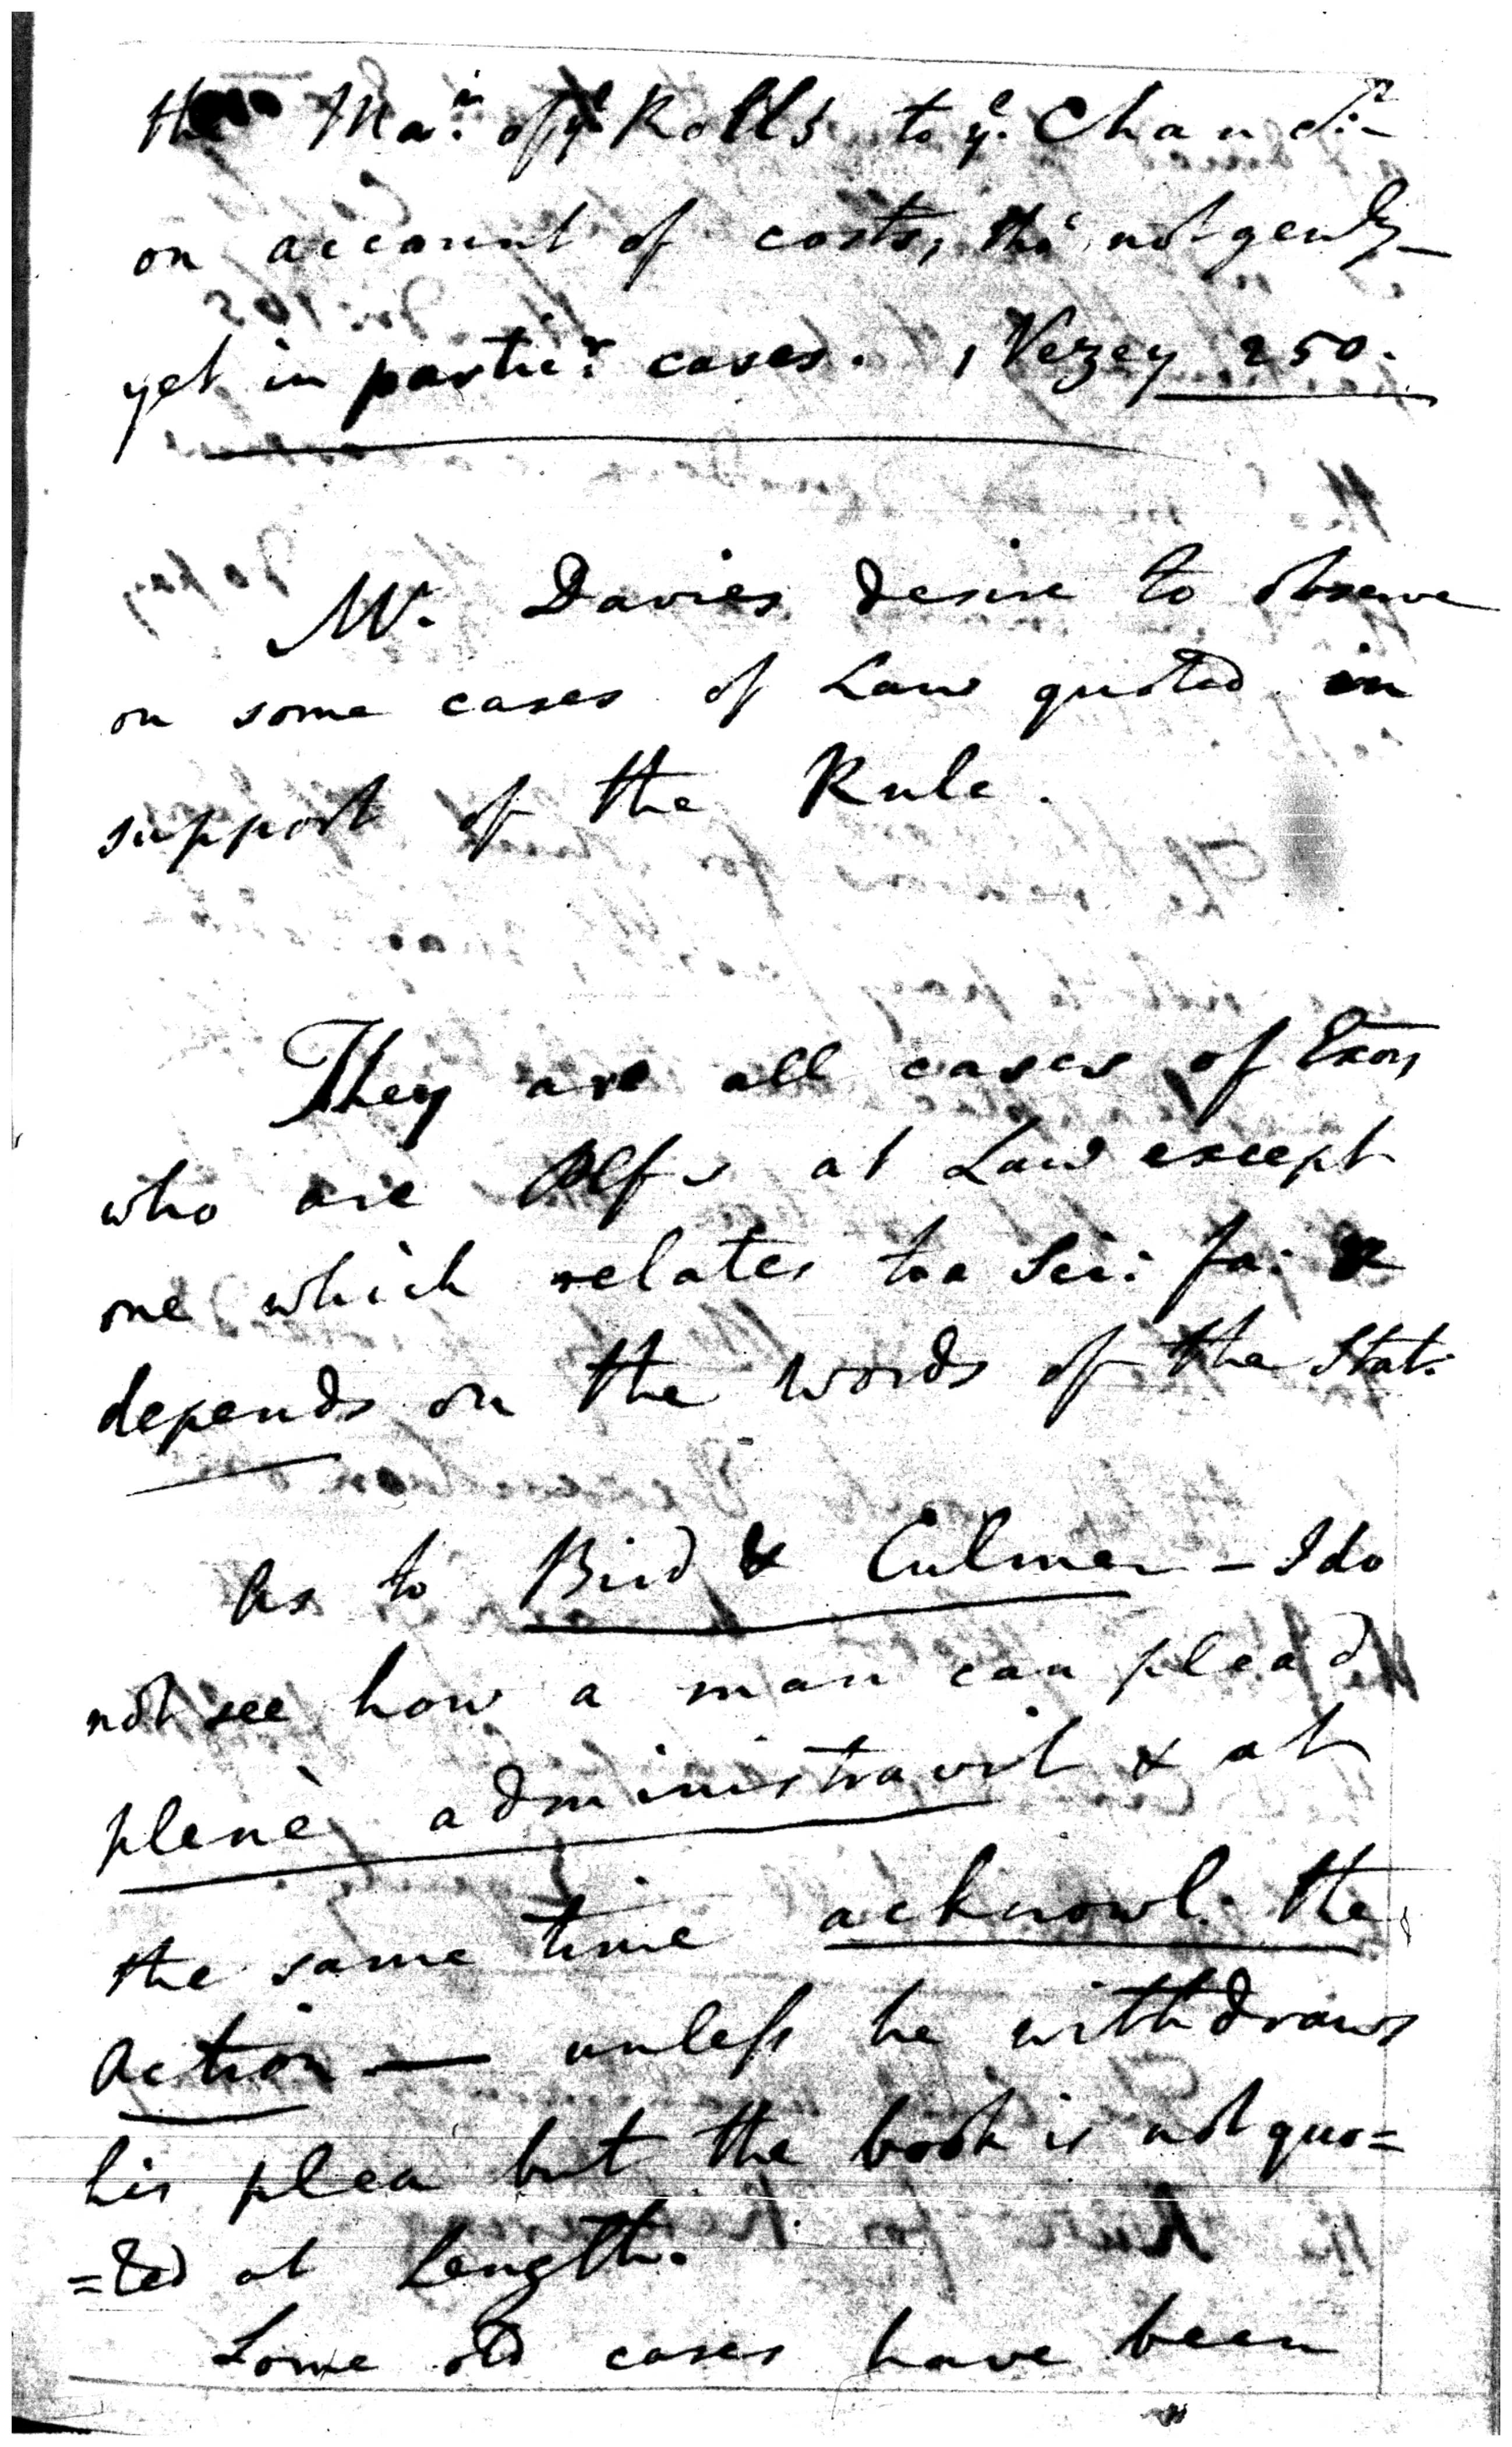 the Ma.^in of y^e Rolls to y^e. Chan^r
on account of costs, tho' not genly
yet in partic^r. cases. 1 Vezey 250.
Mr. Davies desire to observe
on some cases of Law quoted in
support of the Rule.
They are all cases of Exors
who are Plfs at Law except
one which relates to a Sci: fa: &
depends on the words of the Stat:
As to Bird & Culmer - I do
not see how a man can plead
plenè administravit & at
the same time acknowl. the
action — unless he withdraws
his plea but the book is not quo=
=ted at Length.
Some old cases have been